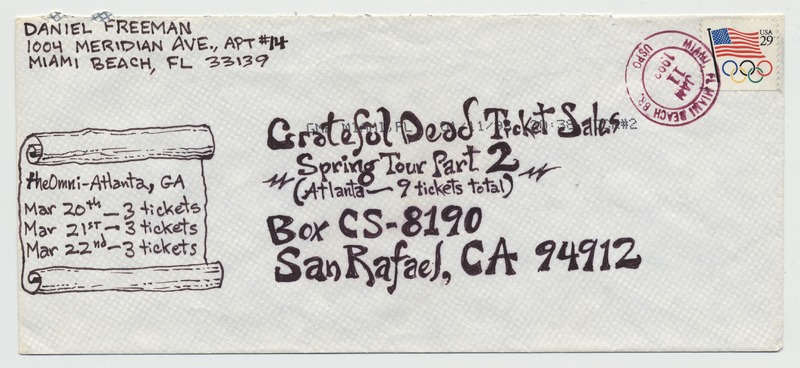 DANIEL FREEMAN
1004 MERIDIAN AVE., APT #14
MIAMI BEACH, FL 33139
USA
29
MIAMI, FL MIAMI BEACH BR.
USPO
JAN
11
GMF MIAMI, FL
#2
Grateful Dead Ticket Sales
Spring Tour Part 2
(Atlanta — 9 tickets total)
Box CS-8190
San Rafael, CA 94912
theOmni-Atlanta, GA
Mar 20th — 3 tickets
Mar 21st — 3 tickets
Mar 22nd — 3 tickets